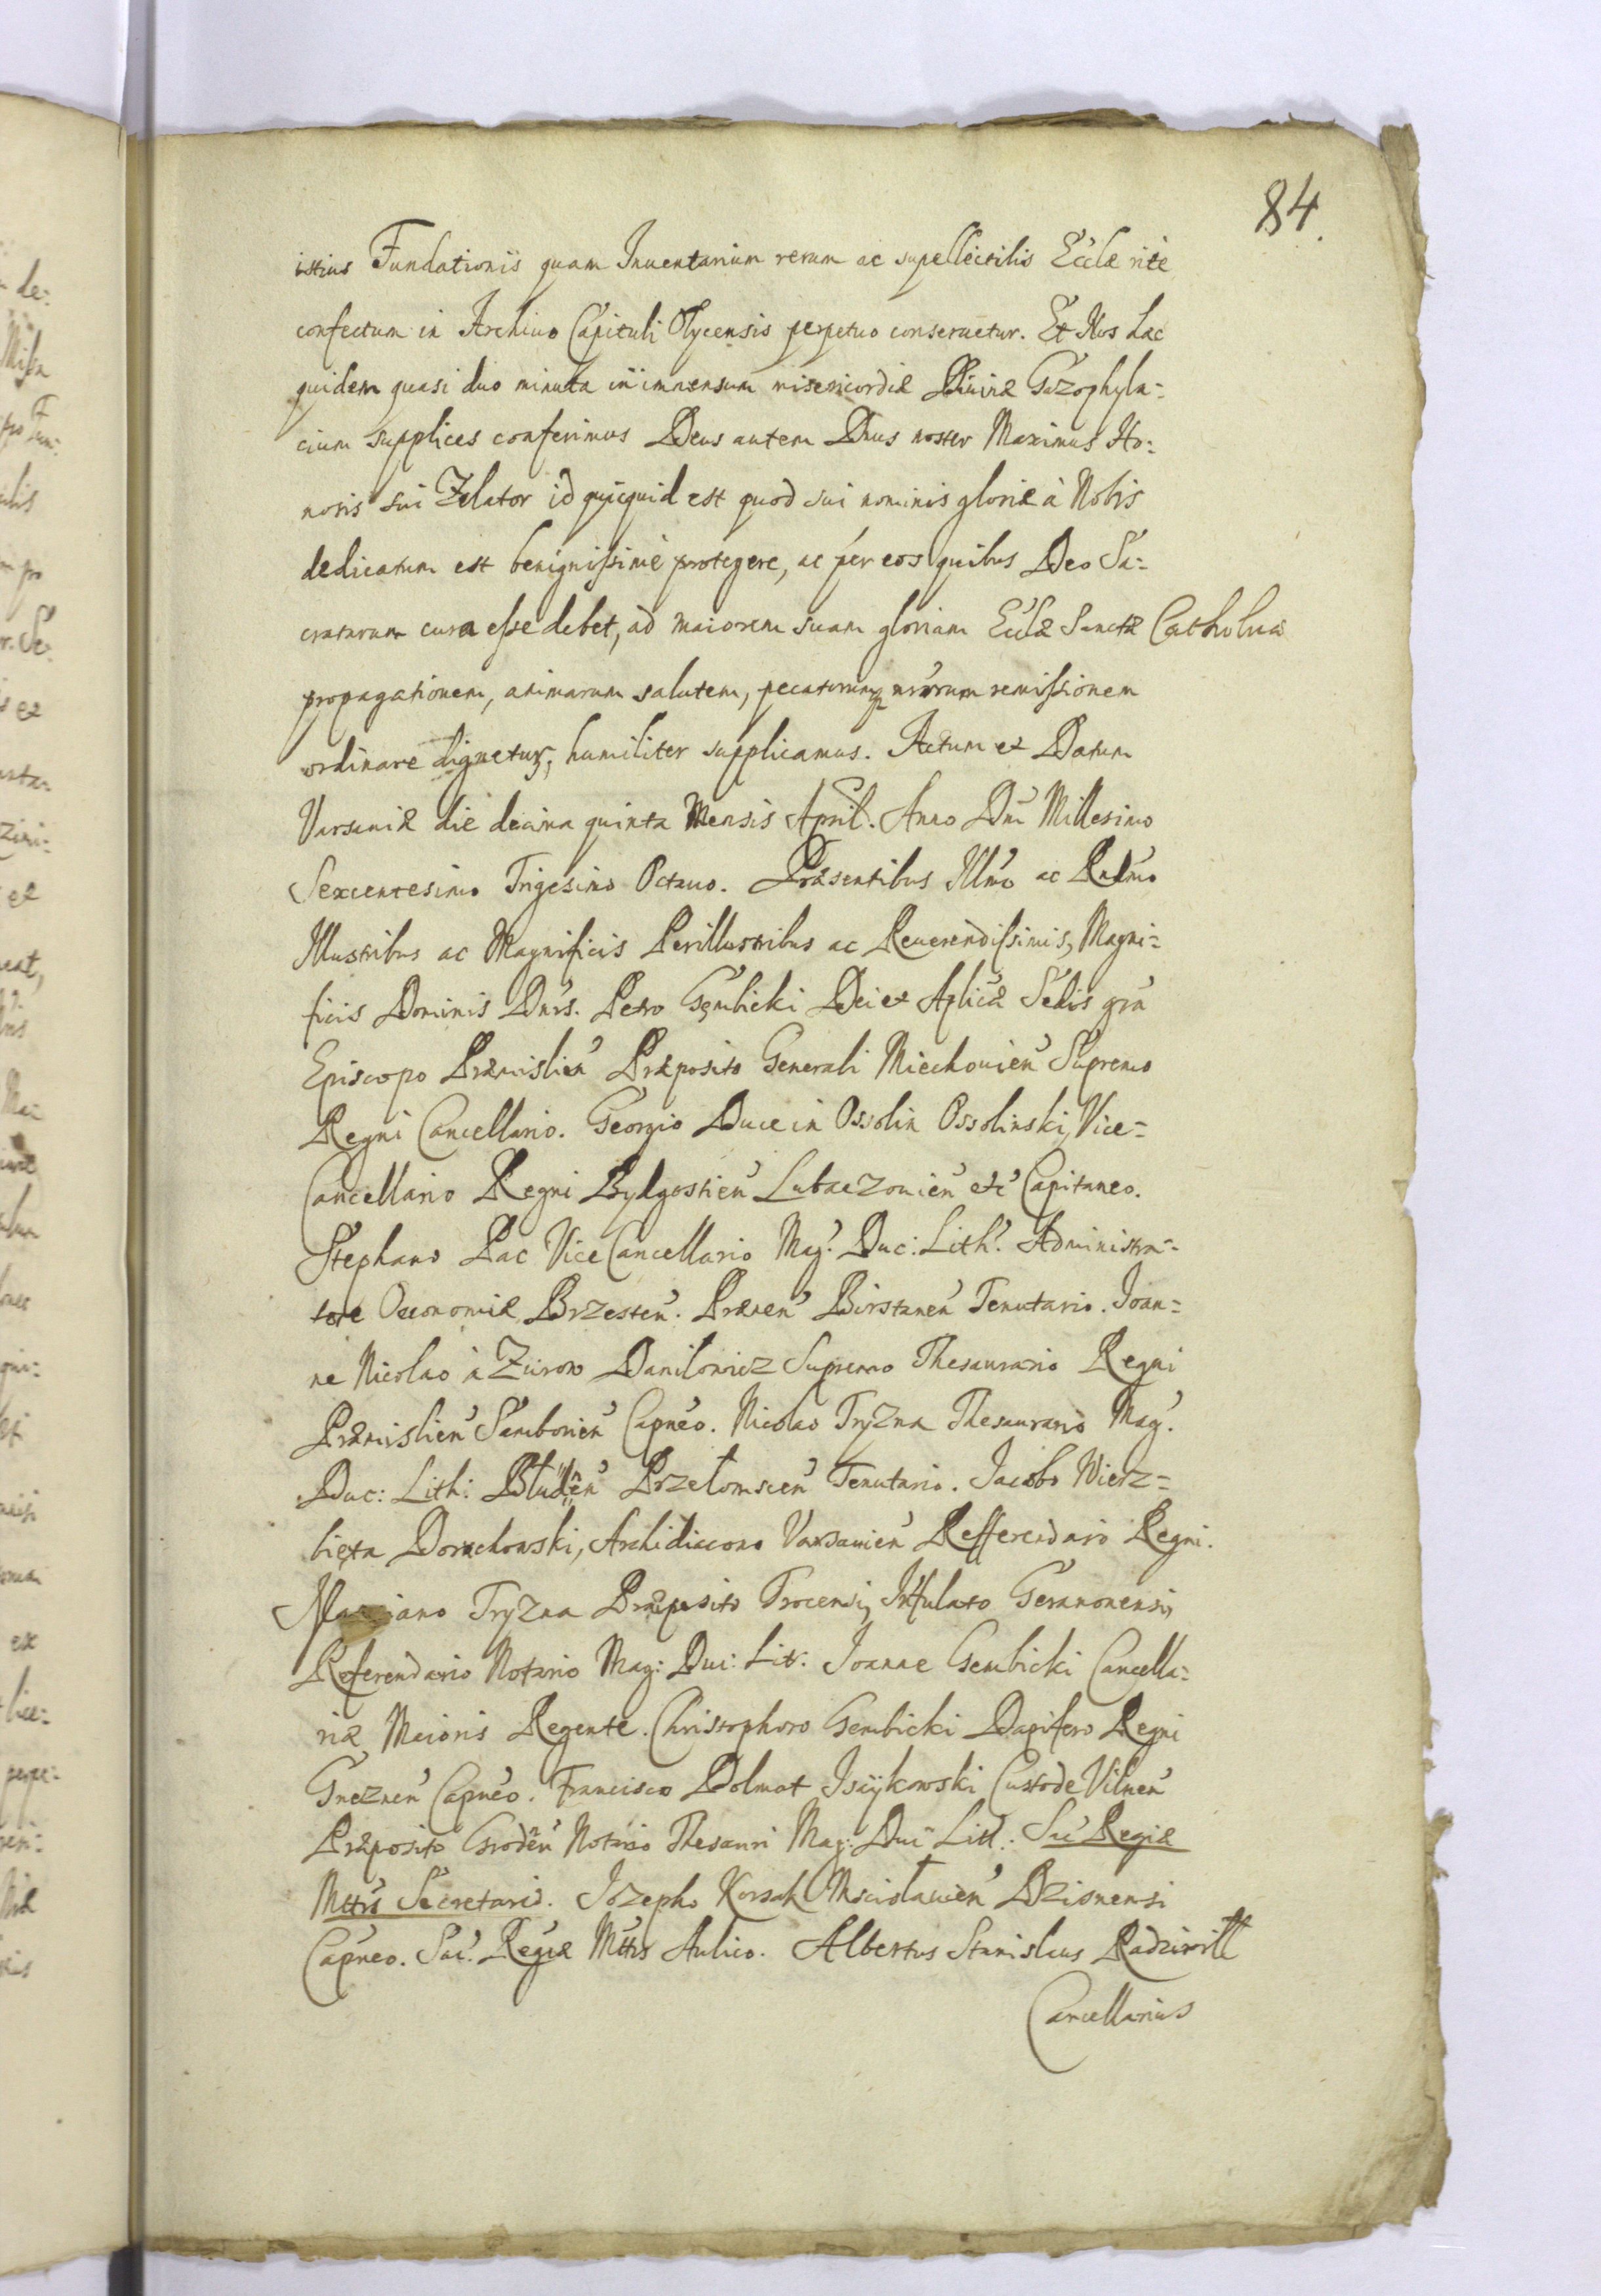 84.
istius Fundationis quam Inuentarium rerum ac supellectilis Eccłæ ritè
confectum in Archiuo Capituli Olycensis perpetuo conseruetur. Et Nos hac
quidem quasi duo minuta in immensum misericordiæ Diuinæ Gazophyla=
cium supplices conferimus Deus autem Dnus noster Maximus Ho=
noris sui Zelator id quicquid est quod sui nominis gloriæ à Nobis
dedicatum est benignissimè protegere, ac per eos quibus Deo Sa=
cratarum cura esse debet, ad maiorem suam gloriam Eccłæ Sanctæ Catholicæ
propagationem, animarum salutem, pecatorumq; nrorum remissionem
ordinare dignetur, humiliter supplicamus. Actum et Datum
Varsauiæ die decima quinta Mensis April. Anno Dni Millesimo
Sexcentesimo Trigesimo Octauo. Præsentibus Illmo ac Rndmo
Illustribus ac Magnificis Perillustribus ac Reuerendissimis, Magni=
ficis Dominis Dnis. Petro Gembicki Dei et Aplicæ Sedis gra
Episcopo Præmislien Præposito Generali Miechouien Supremo
Regni Cancellario. Georgio Duce in Ossolin Ossolinski, Vice=
Cancellario Regni Bydgostien Lubaczouien etc Capitaneo.
Stephano Pac Vice Cancellario Mag. Duc: Lith. Administra=
tore Oeconomiæ Brzesten. Prænen Birstanen Tenutario. Joan=
ne Nicolao à Zurow Daniłowicz Supremo Thesaurario Regni
Præmislien Samborien Capneo. Nicolao Tryzna Thesaurario Mag.
Duc: Lith: Bludēn Przełomscen Tenutario. Jacobo Wierz=
bięta Doruchowski, Archidiacono Varsauien Refferendario Regni.
Marciano Tryzna Præposito Trocensi, Infulato Geranonensi,
Referendario Notario Mag: Duc: Lit: Joanne Gembicki Cancella=
riæ Maioris Regente. Christophoro Gembicki Dapifero Regni
Gneznen Capneo. Francisco Dolmat Isaykowski Custode Vilnen
Præposito Grodēn Notario Thesauri Mag: Duc Litt: Sac Regiæ
Mttis Secretario. Jozepho Korsak Mscisłauien Dzisnensi
Capneo. Sac. Regiæ Mttis Aulico. Albertus Stanislaus Radziwiłł
Cancellarius